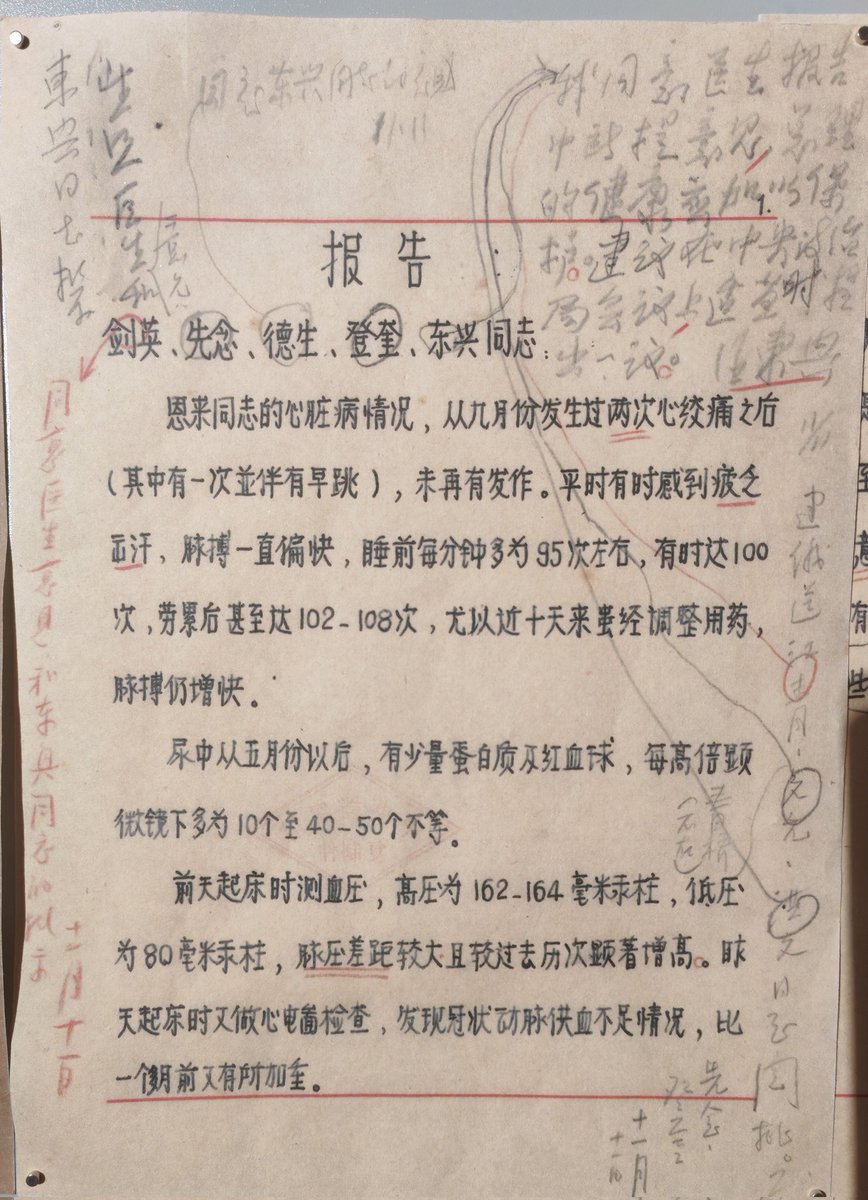 我同意医生报告
中所提意见，总理
的健康要加以保
护。建议在中央政治
局会议上适当时
出一议。 汪东兴
1.
报告
剑英、先念、德生、登奎、东兴同志：
恩来同志的心脏病情况，从九月份发生过两次心绞痛之后
（其中有一次並伴有早跳），未再有发作。平时有时感到疲乏
出汗，脉搏一直偏快，睡前每分钟多为95次左右，有时达100
次，劳累后甚至达102-108次，尤以近十天来虽经调整用药，
脉搏仍增快。
尿中从五月份以后，有少量蛋白质及红血球，每高倍显
微镜下多为10个至40-50个不等。
前天起床时测血压，高压为162-164毫米汞柱，低压
为80毫米汞柱，脉压差距较大且较过去历次显著增高。昨
天起床时又做心电图检查，发现冠状动脉供血不足情况，比
一个月前又有所加重。
同意医生意见和东兴同志的批示
十一月十日
先念
登奎
十一月